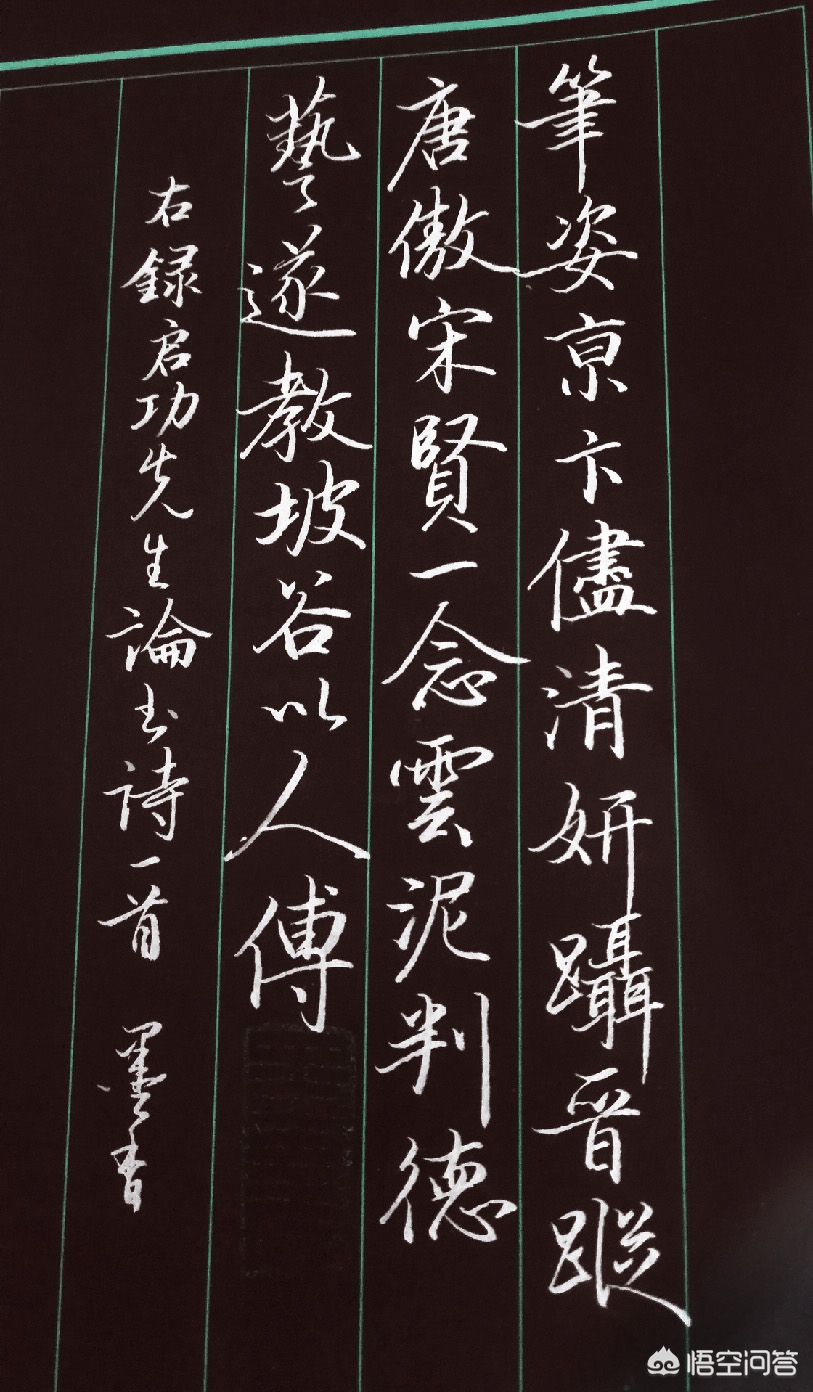 筆姿京卞儘清妍躡晋蹤
唐傲宋賢一念雲泥判德
藝遂教坡谷以人傅
右録启功先生論书詩一首 墨香
悟空问答